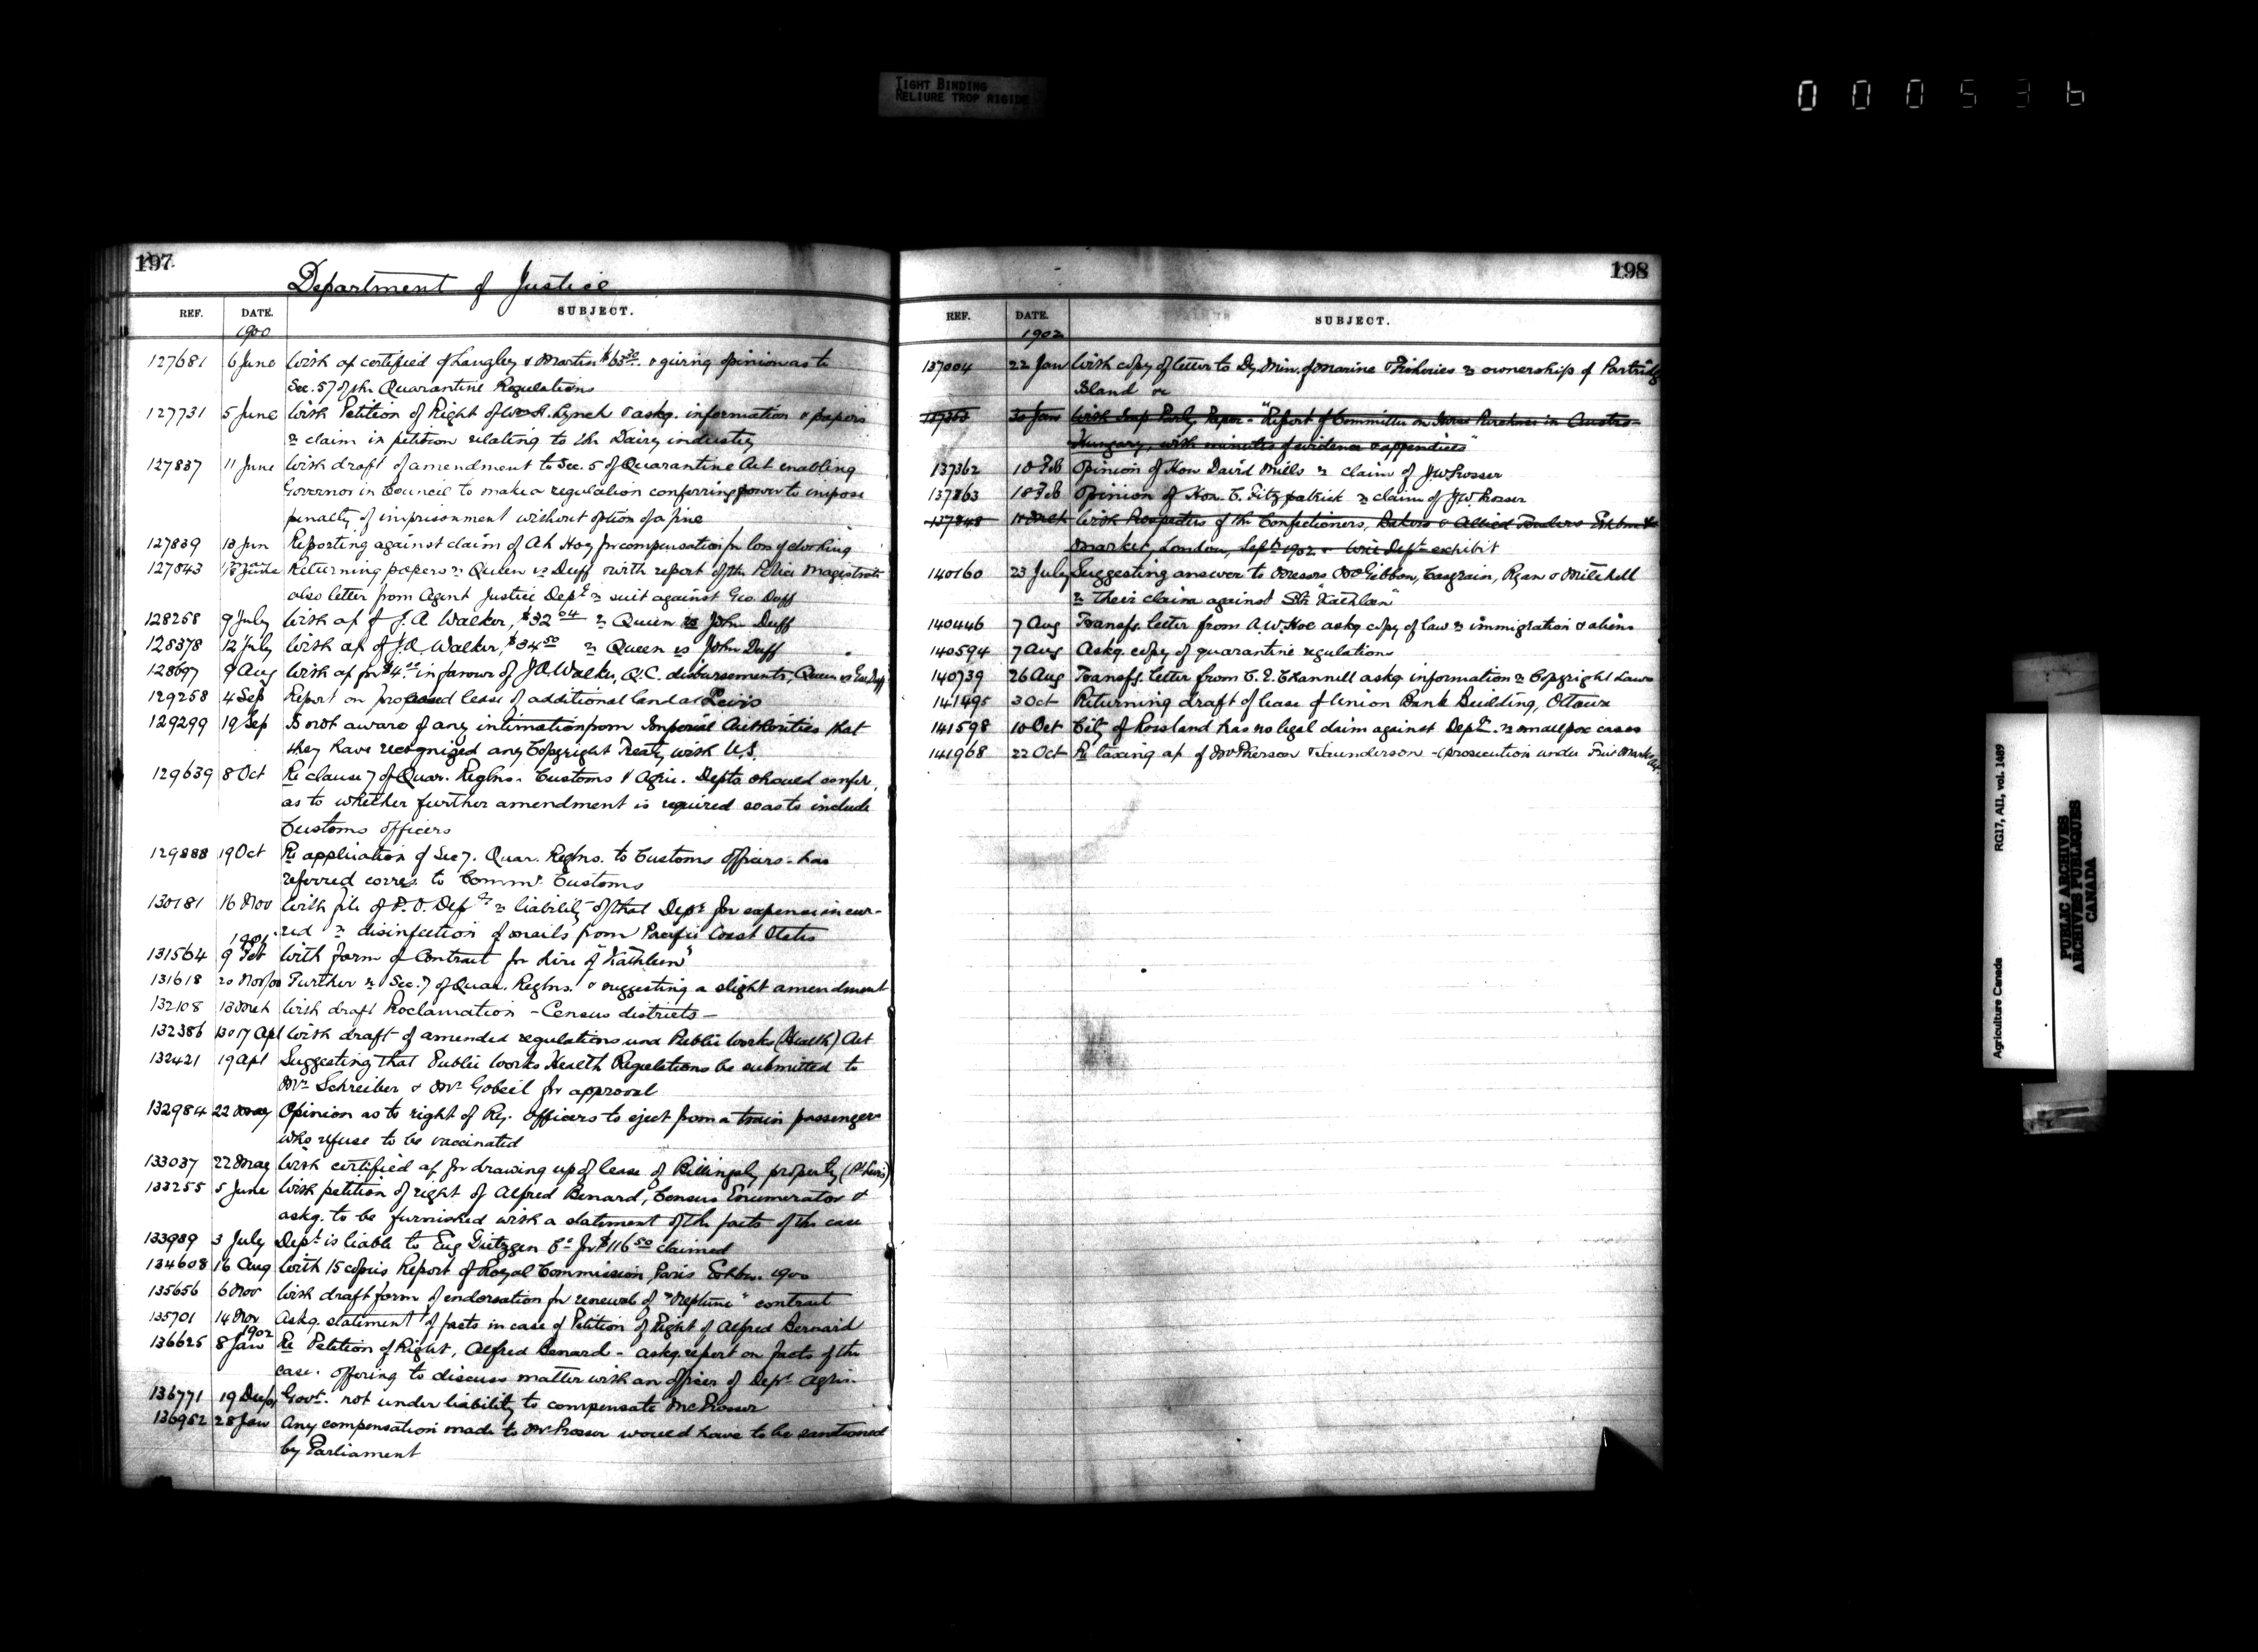 TIGHT BINDING
RELIURE TROP RIGIDE
000536
197
Department of Justice
REF. DATE. SUBJECT.
1900
127681 6 June With a/c certified of Langley & Martin $63.30 & giving opinion as to
Sec. 57 of the Quarantine Regulations
127731 5 June With Petition of Right of A. Lynch & askg. information & papers
re claim in petition relating to the Dairy industry
127837 11 June With draft of amendment to Sec. 5 of Quarantine Act enabling
Governor in Council to make a regulation conferring power to impose
penalty of imprisonment without option of a fine
127839 13 Jun Reporting against claim of Ah Hoy for compensation for loss of clothing
127843 June Returning papers re Queen vs Duff with report of the Police Magistrate
also letter from Agent Justice Dept re suit against Geo. Duff
128258 9 July With a/c of J.A. Walker, $32.04 re Queen vs John Duff
128378 12 July With a/c of J.A. Walker, $34.50 re Queen vs John Duff
128697 9 Aug With a/c for $4. in favour of J.A. Walker, Q.C. disbursements, Queen vs Geo. Duff
129258 4 Sep Report on proposed lease of additional land at Levis
129299 19 Sep Is not aware of any intimation from Imperial Authorities that
they have recognized any Copyright Treaty with U.S.
129639 8 Oct Re clause 7 of Quar. Reglns. Customs & Agric. Depts should confer,
as to whether further amendment is required so as to include
Customs officers
129888 19 Oct Re application of Sec 7. Quar. Reglns. to Customs officers - has
referred corres. to Commr. Customs
130181 16 Nov With file of P.O. Dept re liability of that Dept for expense incur-
red re disinfection of mails from Pacific Coast States
1901
131564 9 Feb With form of Contract for hire of "Kathleen"
131618 20 Nov/00 Further re Sec. 7 of Quar. Reglns. & suggesting a slight amendment
132108 13 Mch With draft Proclamation - Census districts -
132386 17 Apl With draft of amended regulations und Public Works (Health) Act
132421 19 Apl Suggesting that Public Works Health Regulations be submitted to
Mr Schreiber & Mr Gobeil for approval
132984 22 May Opinion as to right of Ry. officers to eject from a train passengers
who refuse to be vaccinated
133037 22 May With certified a/c for drawing up of lease of Billingsly property (Pt Levis)
133255 5 June With petition of right of Alfred Benard, Census Enumerator &
askg. to be furnished with a statement of the facts of the case
133989 3 July Dept is liable to Eug Gietzgen Co for $116.50 claimed
134608 16 Aug With 15 copies Report of Royal Commission, Paris Exhbn. 1900
135656 6 Nov With draft form of endorsation for renewal of "Neptune" contract
135701 14 Nov Askg. statement of facts in case of Petition of Right of Alfred Bernard
1902
136625 8 Jan Re Petition of Right, Alfred Benard - askg. report on facts of the
case. offering to discuss matter with an officer of Dept Agric.
136771 19 Dec/01 Govt. not under liability to compensate Mr Prosser
136952 28 Jan Any compensation made to Mr Prosser would have to be sanctioned
by Parliament
198
REF. DATE. SUBJECT.
1902
137004 22 Jan With copy of letter to Dy. Min. of Marine & Fisheries re ownership of Partridge
Island &c
30 Jan With Imp Parly. Paper - "Report of Committee on Horse Purchases in Austro-
Hungary, with minutes of evidence & appendices"
137362 10 Feb Opinion of Hon David Mills re claim of J.W. Prosser
137363 18 Feb Opinion of Hon. C. Fitzpatrick re claim of J.W. Prosser
137848 11 Mch With Prospectus of the Confectioners, Bakers & Allied Traders Exhbn &
Market, London, Sept 1902 - will Dept exhibit
140160 23 July Suggesting answer to Messrs McGibbon, Casgrain, Ryan & Mitchell
re their claim against Str "Kathleen"
140446 7 Aug Transfg. letter from A.W. Hoe askg copy of law re immigration & aliens
140594 7 Aug Askg. copy of quarantine regulations
140739 26 Aug Transfg. letter from C.E. Channell askg information re Copyright Laws
141495 3 Oct Returning draft of lease of Union Bank Building, Ottawa
141598 10 Oct City of Rossland has no legal claim against Dept. re smallpox cases
141968 22 Oct Re taxing a/c of McPherson & Saunderson - (prosecution under Fruit Marks Act
Agriculture Canada RG17, AII, vol. 1489
PUBLIC ARCHIVES
ARCHIVES PUBLIQUES
CANADA